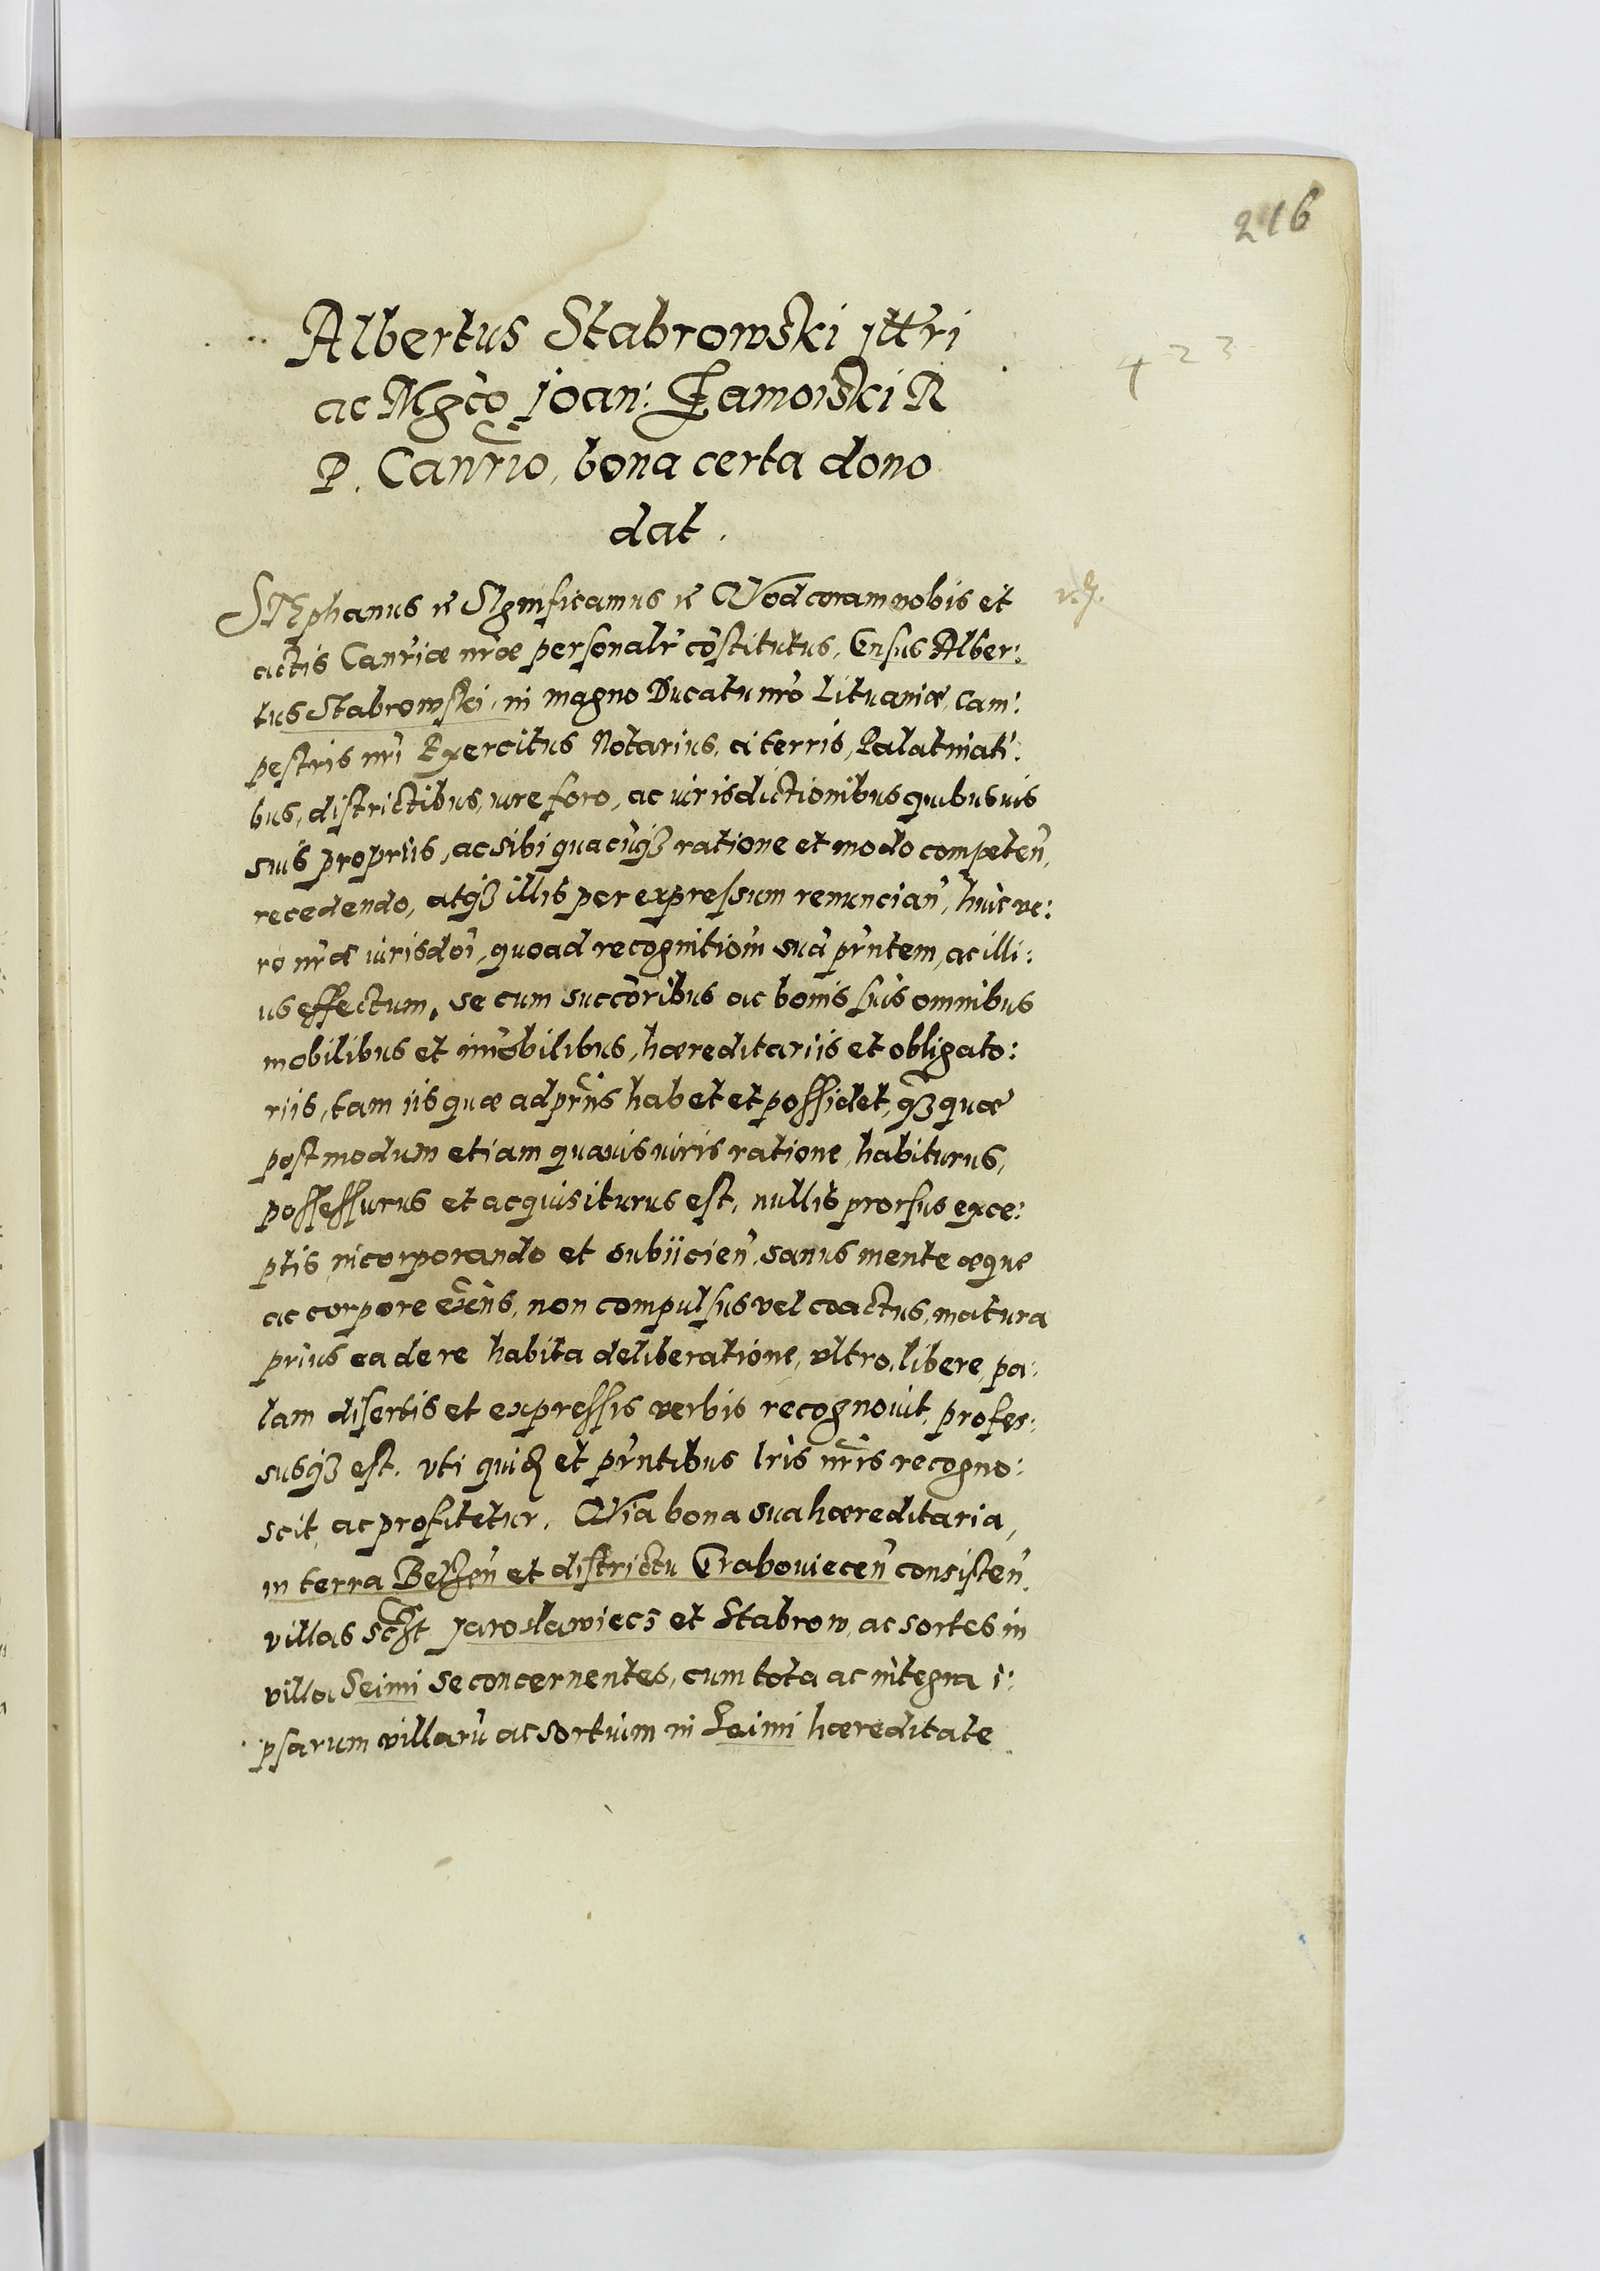 216
Albertus Stabrowski Jllri
ac Mgco Joan: Zamoiski R
P. Canrio, bona certa dono
dat.
423
STEphanus etc Significamus etc Quod coram nobis et
actis Canriæ nræ personalr cõstitutus, Gnsus Alber:
tus Stabrowski, in magno Ducatu nro Lituaniæ, Cam:
pestris nri Exercitus Notarius, a terris, Palatinati:
bus, districtibus, iure foro, ac iurisdictionibus quibusuis
suis propriis, ac sibi quacuq3 ratione et modo competen,
recedendo, atq3 illis per expressum renuncian, huic ve:
ro nræ iurisdoi, quoad recognitiom suã prntem, ac illi:
us effectum, se cum succoribus ac bonis suis omnibus
mobilibus et imobilibus, hæreditariis et obligato:
riis, tam iis quæ ad prns habet et possidet, q3 quæ
postmodum etiam quauis iuris ratione, habiturus,
possessurus et acquisiturus est, nullis prorsus exce:
ptis, incorporando et subiicien, sanus mente æque
ac corpore exens, non compulsus vel coactus, matura
prius ea de re habita deliberatione, vltro, libere, pa:
lam disertis et expressis verbis recognouit, profes:
susq3 est, vti quid et prntibus lris nris recogno:
scit, ac profitetur. Quia bona sua hæreditaria,
in terra Belzen et districtu Graboviecen consisten,
villas sczt Jaroslawiecz et Stabrow, ac sortes in
villa Seimi se concernentes, cum tota ac integra i:
psarum villarũ ac sortium in Seimi hæreditate